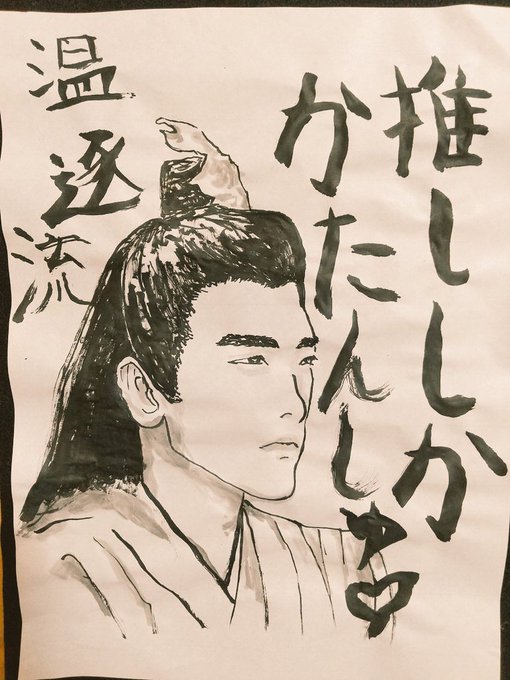 推ししか
かたんし
温逐流